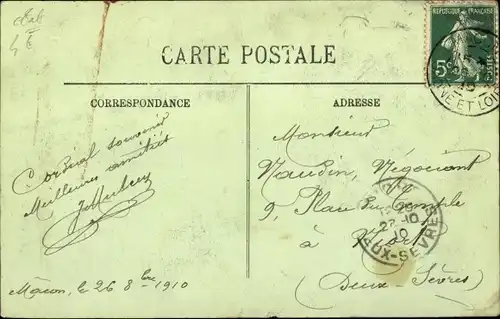 CARTE POSTALE
RÉPUBLIQUE FRANÇAISE
5c
NE ET LOIRE
CORRESPONDANCE
ADRESSE
Cordial souvenir
Meilleures amitiés
Mâcon, le 26 8bre 1910
Monsieur
Naudin, Négociant
9, Place du Temple
à Niort
(Deux-Sèvres)
NIORT
27-10
10
DEUX-SEVRES